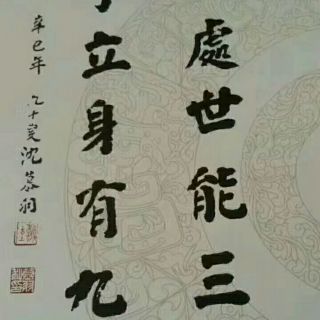 處世能三
立身有九
辛巳年
九十叟沈慕羽